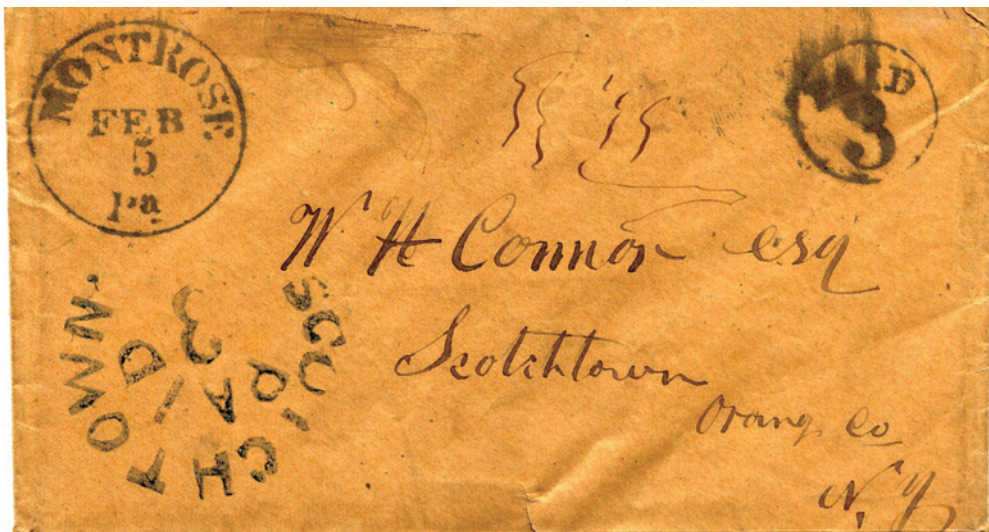 MONTROSE
FEB
5
Pa
PAID
3
W H Connor esq
Scotchtown
Orang. Co
N. Y
SCUICHTOWN.
PAID
3